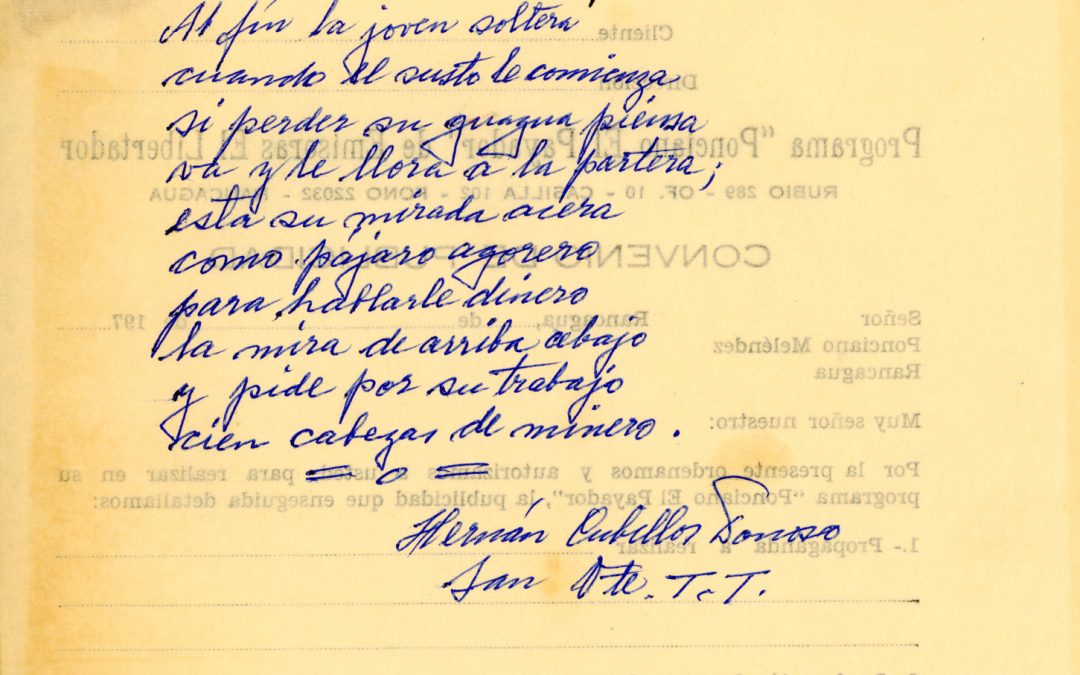 Al fin la joven soltera
cuando el susto le comienza
si perder su guagua piensa
va y le llora a la partera;
esta su mirada acera
como pájaro agorero
para hablarle dinero
la mira de arriba abajo
y pide por su trabajo
cien cabezas de minero.
Hernán Cubillos Donoso
San Vte. T.T.
Cliente
Dirección
Programa "Ponciano El Payador" de Emisoras El Libertador
RUBIO 289 - OF. 10 - CASILLA 102 - FONO 22032 - RANCAGUA
CONVENIO DE PUBLICIDAD
Rancagua, de de 197
Señor
Ponciano Meléndez
Rancagua
Muy señor nuestro:
Por la presente ordenamos y autorizamos a usted para realizar en su
programa "Ponciano El Payador", la publicidad que enseguida detallamos:
1.- Propaganda a realizar